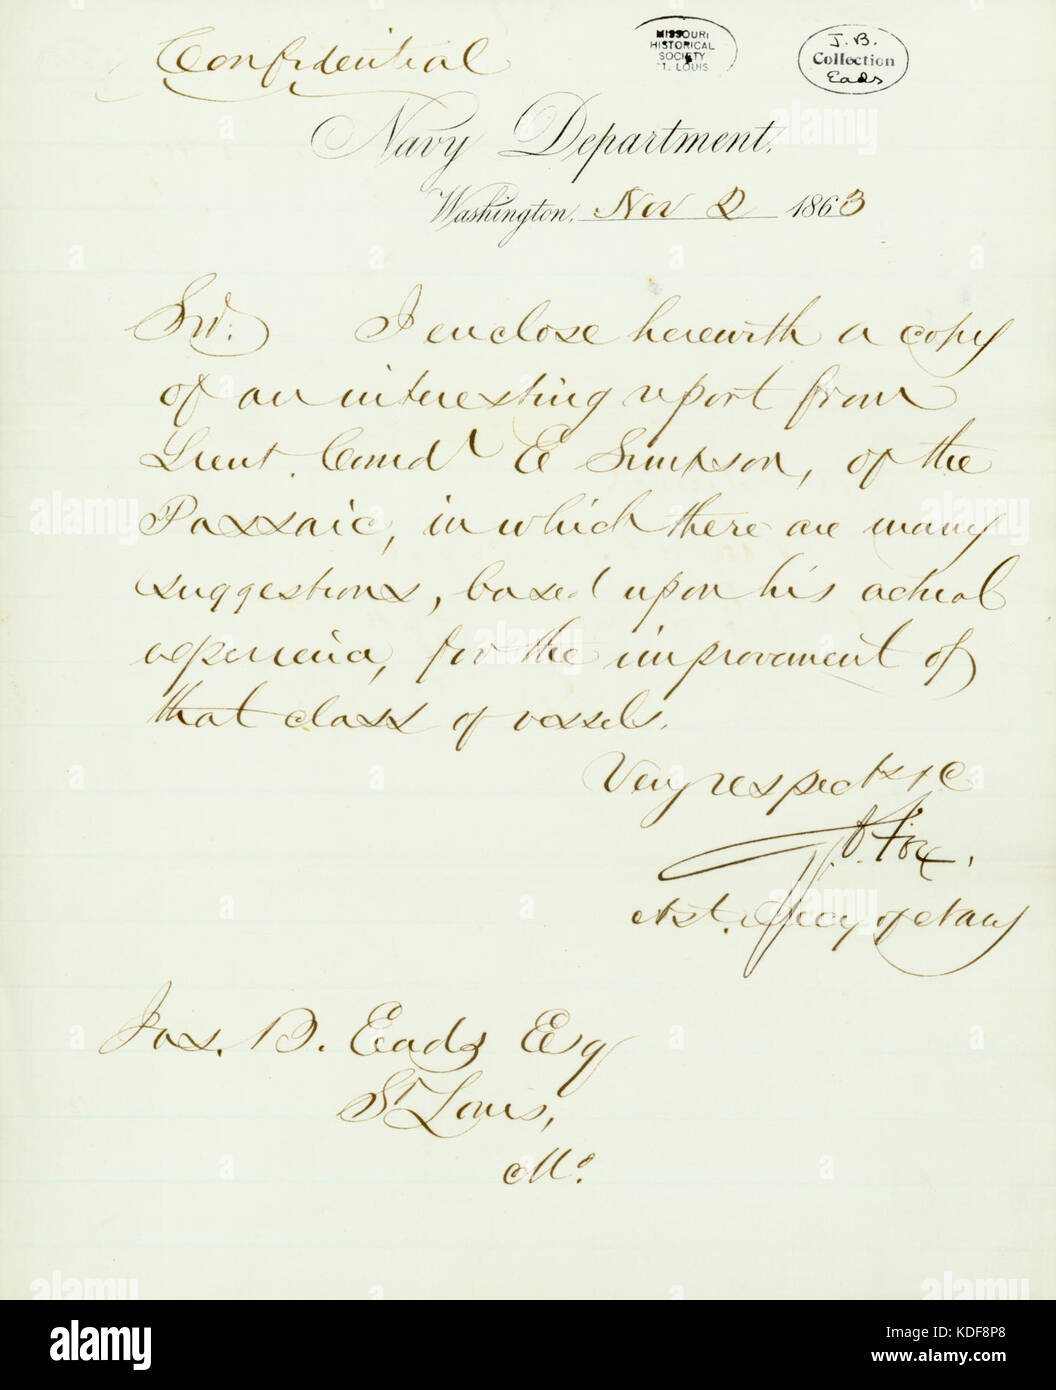 Confidential
MISSOURI
HISTORICAL
SOCIETY
ST. LOUIS
J. B.
Collection
Eads
Navy Department,
Washington, Nov 2 1863
Sir: I enclose herewith a copy
of an interesting report from
Lieut. Comdr E Simpson, of the
Passaic, in which there are many
suggestions, based upon his actual
experience, for the improvement of
that class of vessels.
Very respect &c
G. V. Fox.
Ast. Secy of Navy
Jas. B. Eads Esq
St Louis,
Mo.
alamy
Image ID: KDF8P8
www.alamy.com